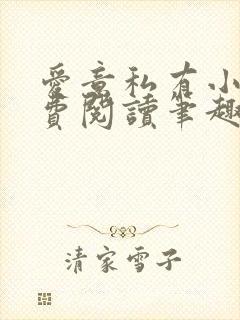 愛意私有小
費閱讀筆趣
清家雪子